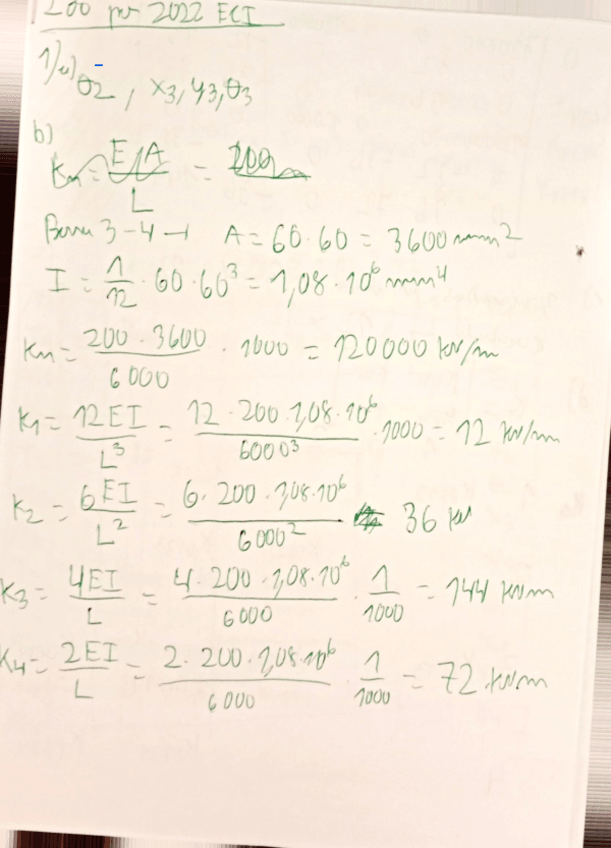 200 per 2022 EC1
1) a) θ2, x3, y3, θ3
b)
Kn = EA/L = 200
Barra 3-4 → A = 60·60 = 3600 mm²
I = 1/12 · 60·60³ = 1,08·10⁶ mm⁴
Kn = 200·3600/6000 · 1000 = 120000 kN/m
K1 = 12EI/L³ = 12·200·1,08·10⁶/6000³ · 1000 = 12 kN/m
K2 = 6EI/L² = 6·200·1,08·10⁶/6000² 36 kN
K3 = 4EI/L = 4·200·1,08·10⁶/6000 · 1/1000 = 144 kNm
K4 = 2EI/L = 2·200·1,08·10⁶/6000 · 1/1000 = 72 kNm